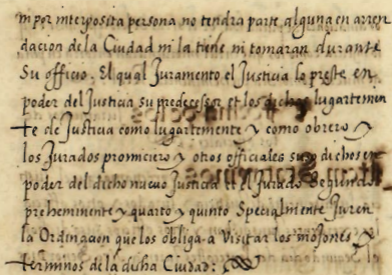 ni por interposita persona no tendra parte alguna en arren
dacion de la Ciudad ni la tiene ni tomaran durante
Su officio. El qual Juramento el Justicia lo preste en
poder del Justicia su predecessor et los dichos lugartenien
te de Justicia como lugarteniente y como obrero y
los Jurados prohmiciero y otros officiales suso dichos en
poder del dicho nuevo Justicia et el Jurado Segundo
preheminente y quarto y quinto Specialmente Juren
la Ordinacion que los obliga a Visitar los mojones y
terminos de la dicha Ciudad: